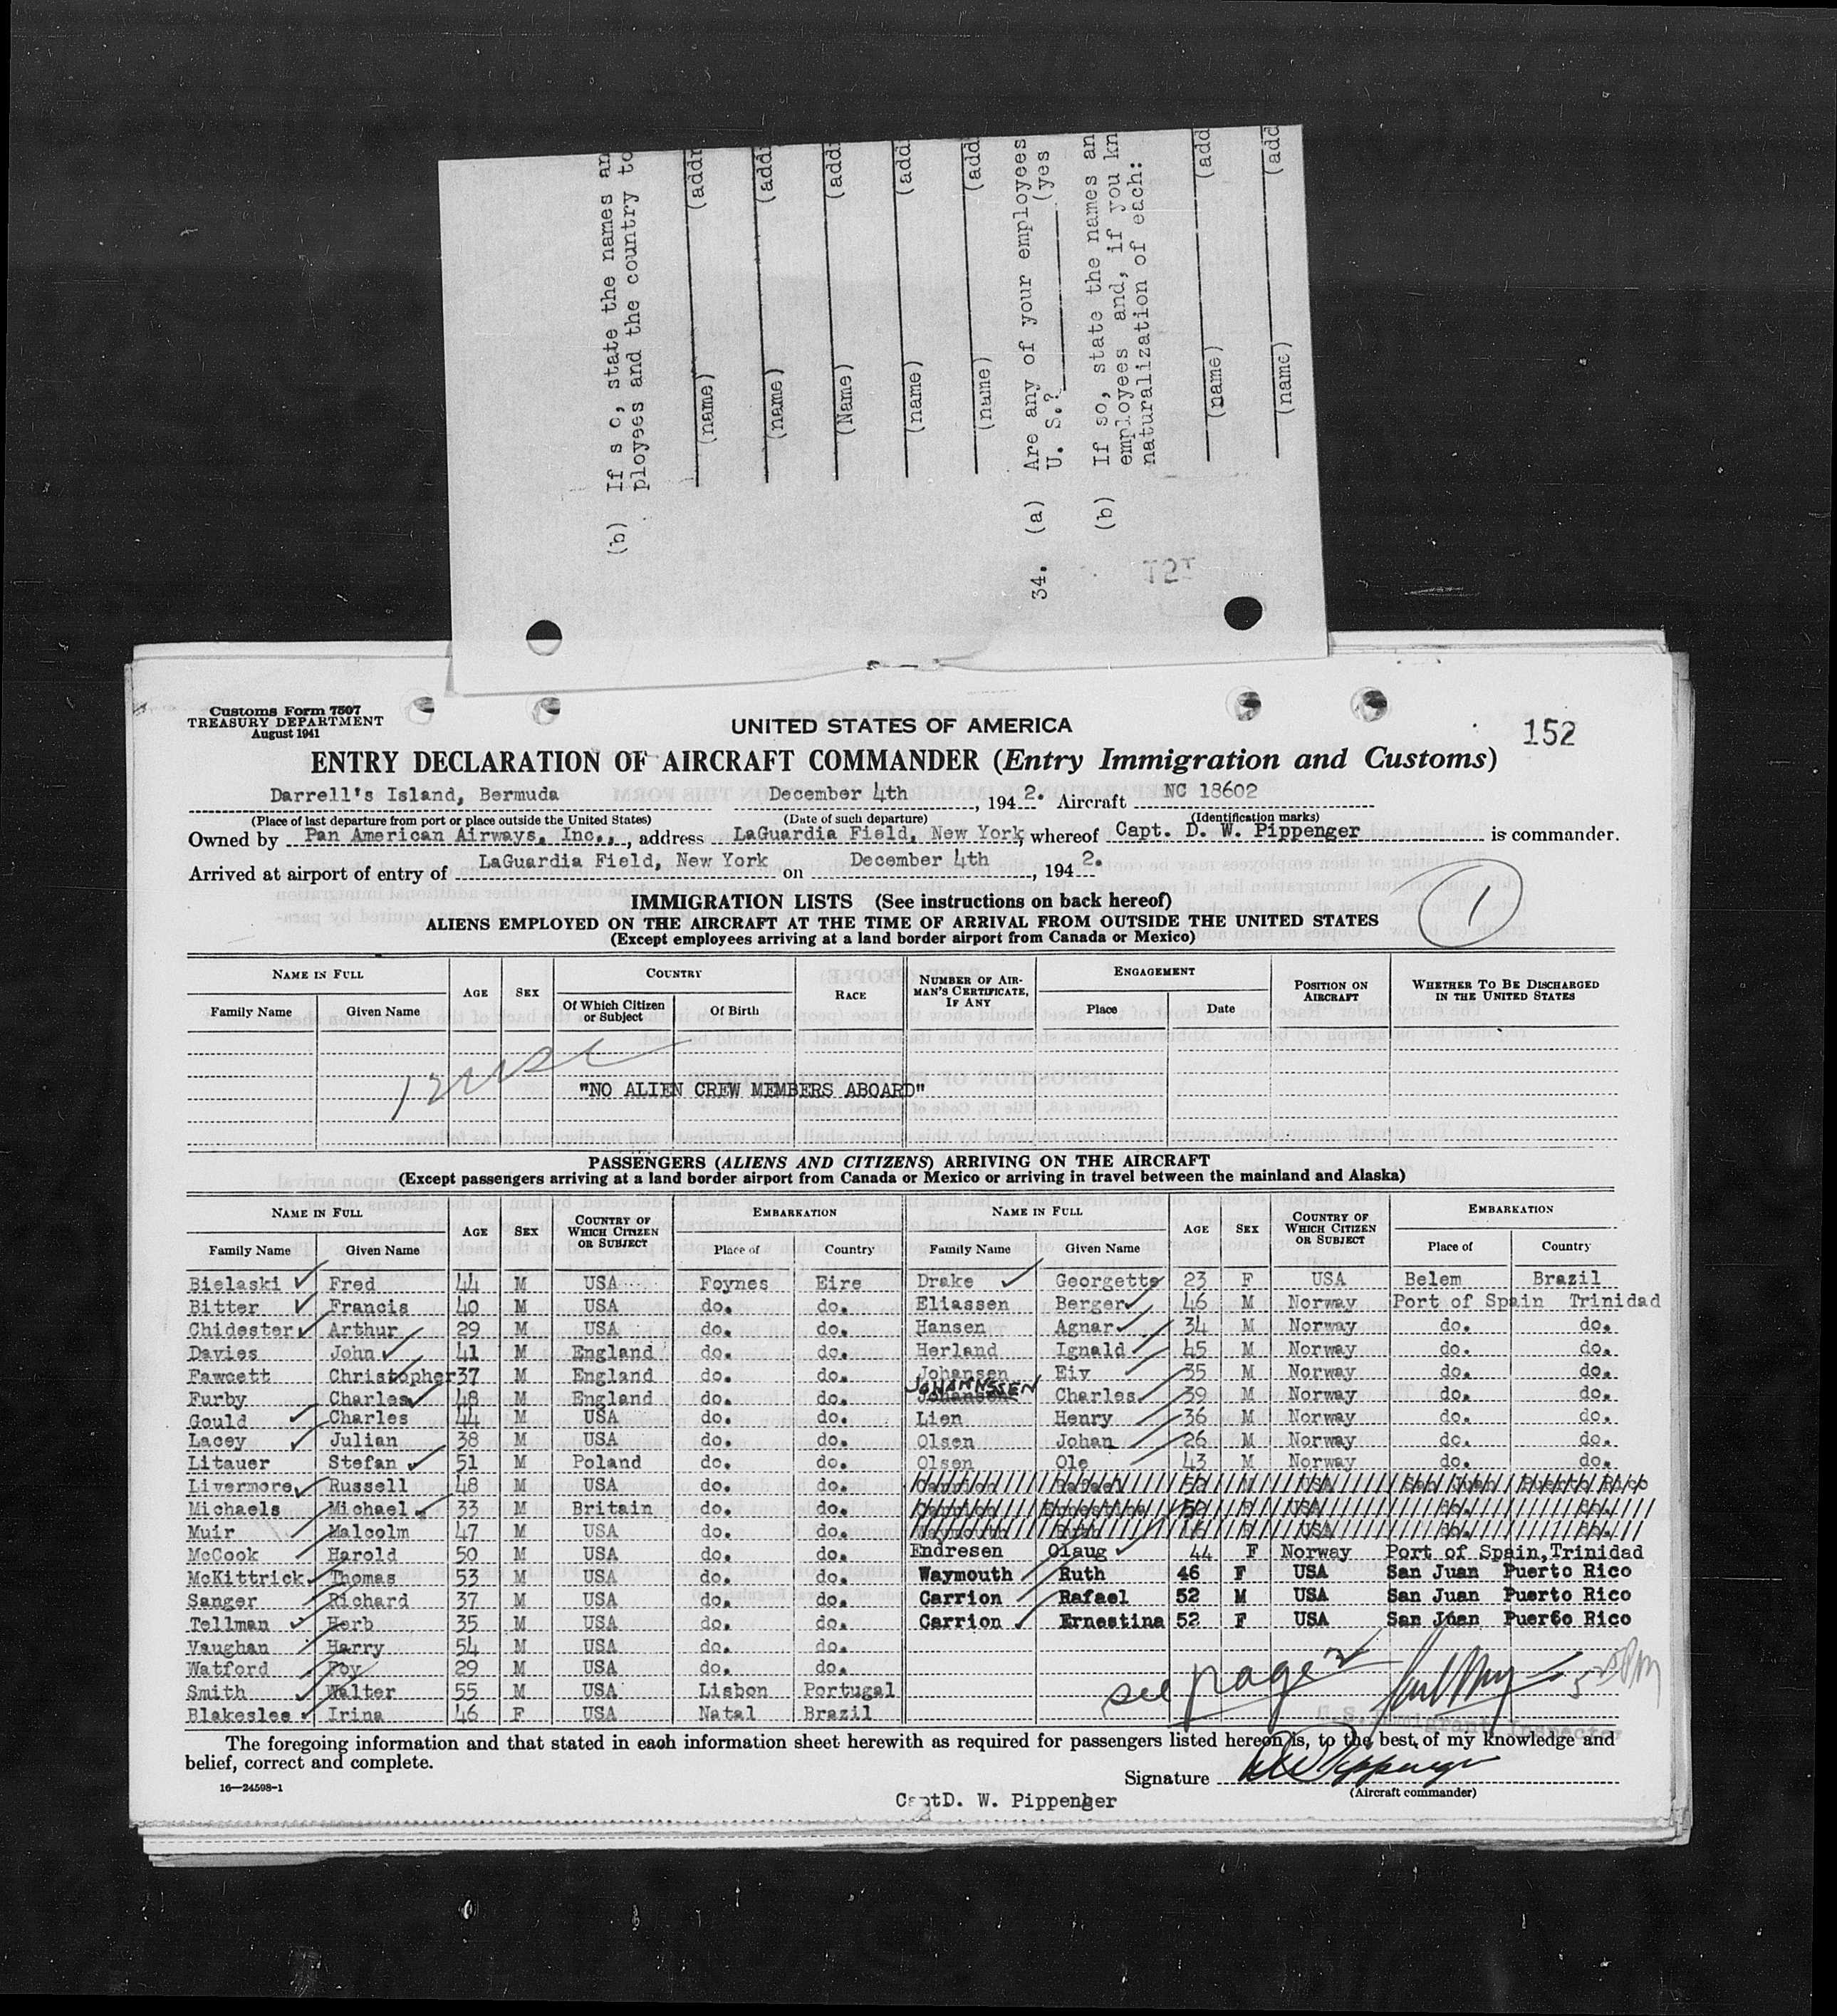 (b) If s o, state the names an
ployees and the country to
(name) (addr
(name) (add
(Name) (add
(name) (add
(name) (add
34. (a) Are any of your employees
U. S.? (yes
(b) If so, state the names an
employees and, if you kn
naturalization of each:
(name) (add
(name) (add
151
Customs Form 7507
TREASURY DEPARTMENT
August 1941
UNITED STATES OF AMERICA
152
ENTRY DECLARATION OF AIRCRAFT COMMANDER (Entry Immigration and Customs)
Darrell's Island, Bermuda December 4th, 1942. Aircraft NC 18602
(Place of last departure from port or place outside the United States) (Date of such departure) (Identification marks)
Owned by Pan American Airways, Inc., address LaGuardia Field, New York, whereof Capt. D. W. Pippenger is commander.
Arrived at airport of entry of LaGuardia Field, New York on December 4th, 1942.
1
IMMIGRATION LISTS (See instructions on back hereof)
ALIENS EMPLOYED ON THE AIRCRAFT AT THE TIME OF ARRIVAL FROM OUTSIDE THE UNITED STATES
(Except employees arriving at a land border airport from Canada or Mexico)
NAME IN FULL AGE SEX COUNTRY RACE NUMBER OF AIRMAN'S CERTIFICATE, IF ANY ENGAGEMENT POSITION ON AIRCRAFT WHETHER TO BE DISCHARGED IN THE UNITED STATES
Family Name Given Name Of Which Citizen or Subject Of Birth Place Date
"NO ALIEN CREW MEMBERS ABOARD"
PASSENGERS (ALIENS AND CITIZENS) ARRIVING ON THE AIRCRAFT
(Except passengers arriving at a land border airport from Canada or Mexico or arriving in travel between the mainland and Alaska)
NAME IN FULL AGE SEX COUNTRY OF WHICH CITIZEN OR SUBJECT EMBARKATION NAME IN FULL AGE SEX COUNTRY OF WHICH CITIZEN OR SUBJECT EMBARKATION
Family Name Given Name Place of Country Family Name Given Name Place of Country
Bielaski Fred 44 M USA Foynes Eire Drake Georgette 23 F USA Belem Brazil
Bitter Francis 40 M USA do. do. Eliassen Berger 46 M Norway Port of Spain Trinidad
Chidester Arthur 29 M USA do. do. Hansen Agnar 34 M Norway do. do.
Davies John 41 M England do. do. Herland Ignald 45 M Norway do. do.
Fawcett Christopher 37 M England do. do. Johansen Eiv 35 M Norway do. do.
Furby Charles 48 M England do. do. Johansen JOHANNSSEN Charles 39 M Norway do. do.
Gould Charles 44 M USA do. do. Lien Henry 36 M Norway do. do.
Lacey Julian 38 M USA do. do. Olsen Johan 26 M Norway do. do.
Litauer Stefan 51 M Poland do. do. Olsen Ole 43 M Norway do. do.
Livermore Russell 48 M USA do. do. Rafael USA San Juan Puerto Rico
Michaels Michael 33 M Britain do. do. Ernestina 52 USA do. do.
Muir Malcolm 47 M USA do. do. Waymouth Ruth USA do. do.
McCook Harold 50 M USA do. do. Endresen Olaug 44 F Norway Port of Spain, Trinidad
McKittrick Thomas 53 M USA do. do. Waymouth Ruth 46 F USA San Juan Puerto Rico
Sanger Richard 37 M USA do. do. Carrion Rafael 52 M USA San Juan Puerto Rico
Tellman Herb 35 M USA do. do. Carrion Ernestina 52 F USA San Juan Puerto Rico
Vaughan Harry 54 M USA do. do.
Watford Foy 29 M USA do. do.
Smith Walter 55 M USA Lisbon Portugal
Blakeslee Irina 46 F USA Natal Brazil
see page 2
U.S. Immigrant Inspector
The foregoing information and that stated in each information sheet herewith as required for passengers listed hereon is, to the best of my knowledge and
belief, correct and complete.
16—24598-1
Signature D W Pippenger
(Aircraft commander)
Capt D. W. Pippenger